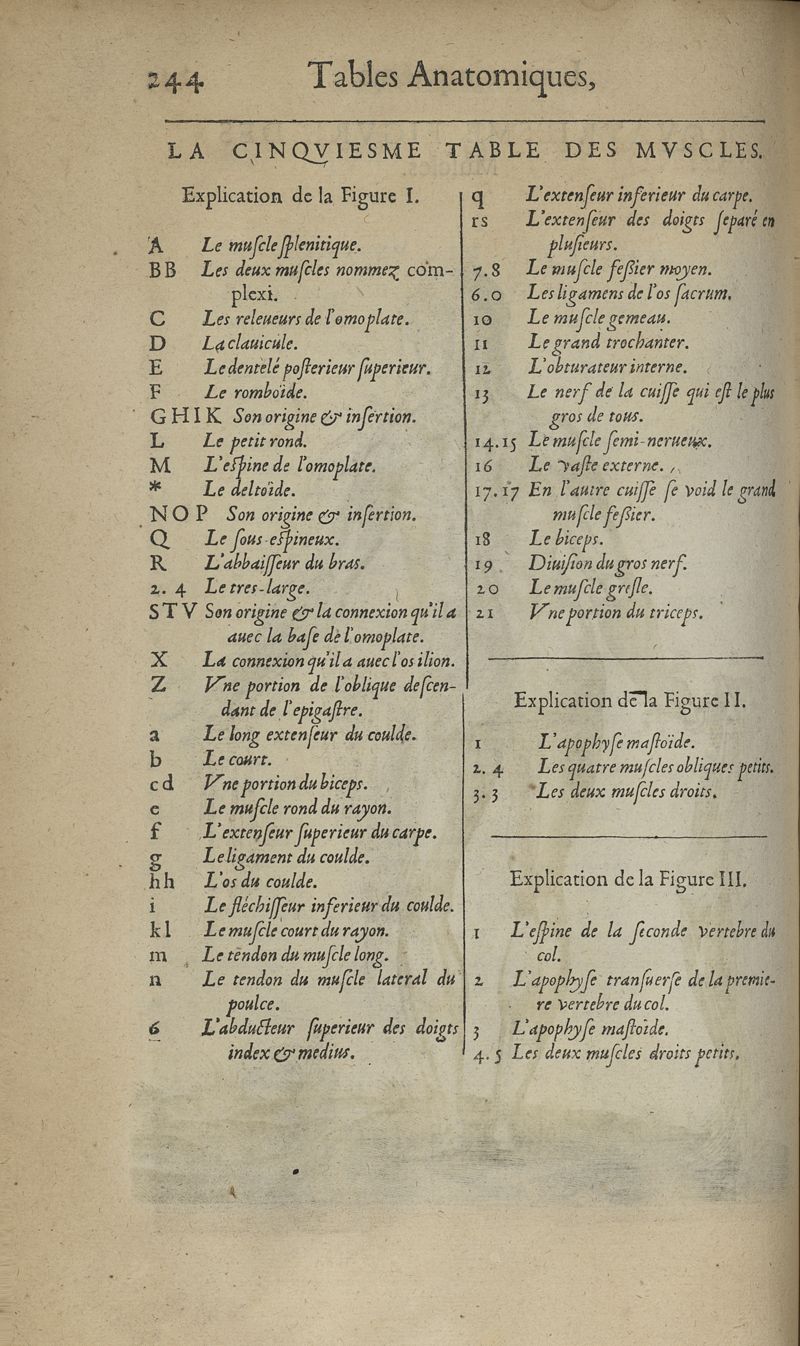 244 Tables Anatomiques,
LA CINQVIESME TABLE DES MVSCLES.
Explication de la Figure I.
A Le muſcle ſplenitique.
BB Les deux muſcles nommez com-
plexi.
C Les releueurs de l'omoplate.
D La clauicule.
E Le dentelé poſterieur ſuperieur.
F Le romboïde.
GHIK Son origine & inſertion.
L Le petit rond.
M L'eſpine de l'omoplate.
* Le deltoïde.
NOP Son origine & inſertion.
Q Le ſous-eſpineux.
R L'abbaiſſeur du bras.
2. 4 Le tres-large.
STV Son origine & la connexion qu'il a
auec la baſe de l'omoplate.
X La connexion qu'il a auec l'os ilion.
Z Vne portion de l'oblique deſcen-
dant de l'epigaſtre.
a Le long extenſeur du coulde.
b Le court.
cd Vne portion du biceps.
e Le muſcle rond du rayon.
f L'extenſeur ſuperieur du carpe.
g Le ligament du coulde.
hh L'os du coulde.
i Le fléchiſſeur inferieur du coulde.
kl Le muſcle court du rayon.
m Le tendon du muſcle long.
n Le tendon du muſcle lateral du
poulce.
6 L'abducteur ſuperieur des doigts
index & medius.
q L'extenſeur inferieur du carpe.
rs L'extenſeur des doigts ſeparé en
pluſieurs.
7.8 Le muſcle feſſier moyen.
6.0 Les ligamens de l'os ſacrum.
10 Le muſcle gemeau.
11 Le grand trochanter.
12 L'obturateur interne.
13 Le nerf de la cuiſſe qui eſt le plus
gros de tous.
14.15 Le muſcle ſemi-nerueux.
16 Le vaſte externe.
17.17 En l'autre cuiſſe ſe void le grand
muſcle feſſier.
18 Le biceps.
19 Diuiſion du gros nerf.
20 Le muſcle greſle.
21 Vne portion du triceps.
Explication de la Figure II.
1 L'apophyſe maſtoïde.
2. 4 Les quatre muſcles obliques petits.
3. 3 Les deux muſcles droits.
Explication de la Figure III.
1 L'eſpine de la ſeconde vertebre du
col.
2 L'apophyſe tranſuerſe de la premie-
re vertebre du col.
3 L'apophyſe maſtoïde.
4. 5 Les deux muſcles droits petits.